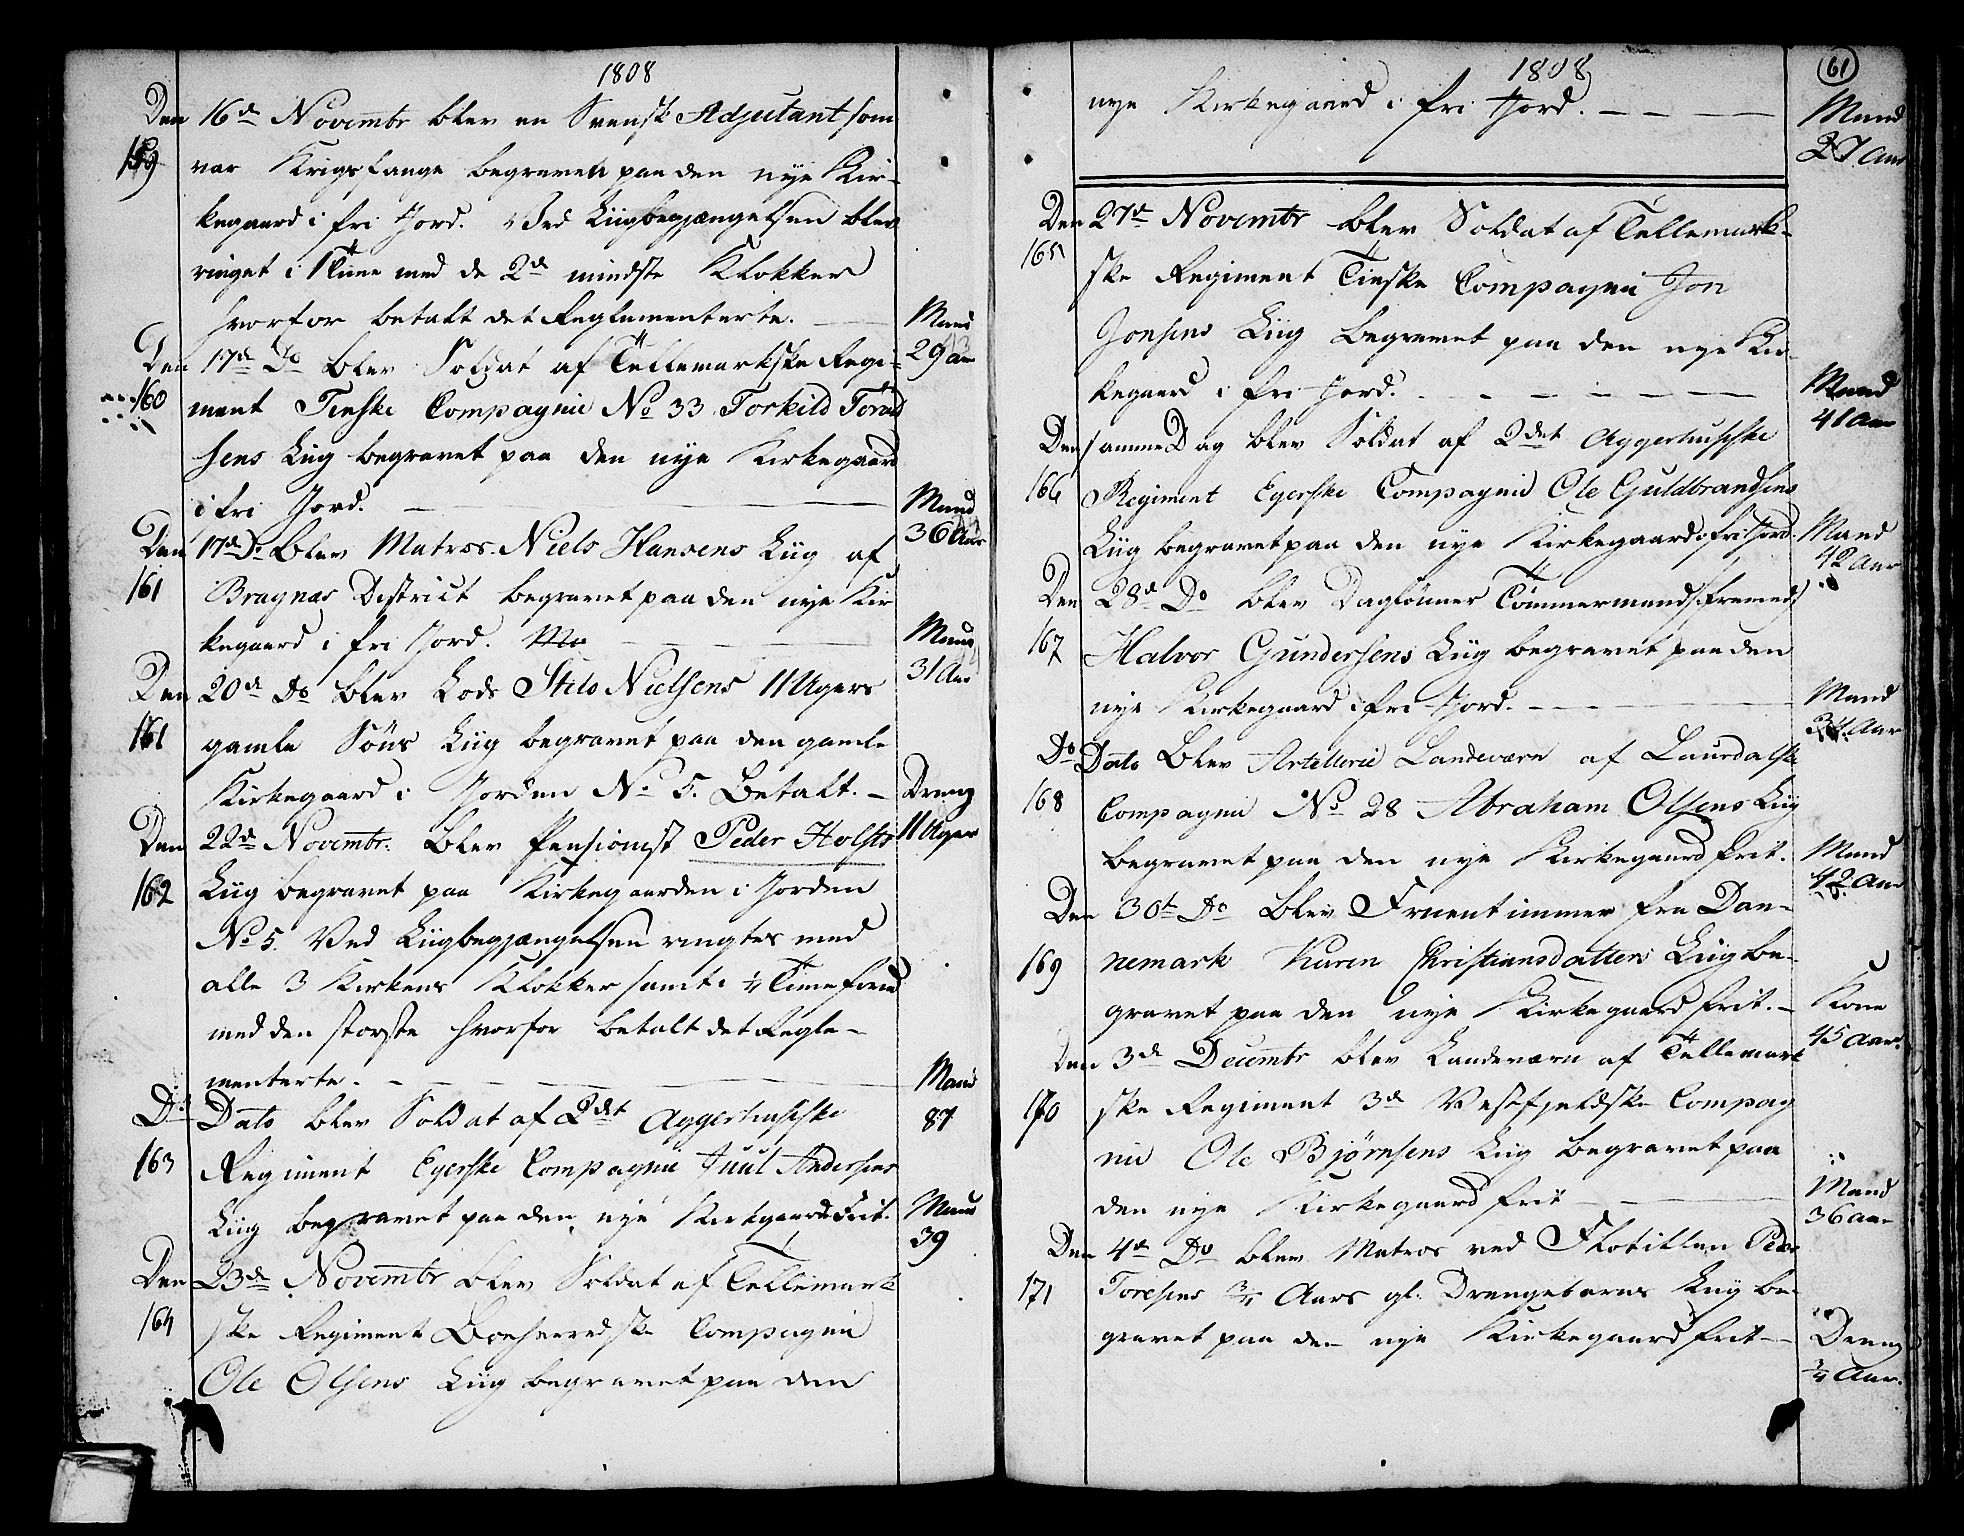 1808
Den 16de Novembr blev en Svensk Adjutant som
159 var Krigsfange begraven paa den nye Kir-
kegaard i fri Jord. Ved Liigbegjængelsen blev
ringet i Time med de 2de mindste Klokker
hvorfor betalt det Reglementerte. — Mand
Den 17de Do blev Soldat af Tellemarkske Regi- 29 Aar
160 ment Tinske Compagnie No 33 Torkild
sens Liig begravet paa den nye Kirkegaard
i fri Jord. — Mand
Den 17de Do blev Matros Niels Hansens Liig af 36 Aar
161 Bragnæs District begravet paa den nye Kir
kegaard i fri Jord. — Mand
Den 20de Do blev Lods Nielsens 11 Ugers 31 Aar
161 gamle Søns Liig begravet paa den gamle
Kirkegaard i Jorden No 5. Betalt. — Dreng
Den 22de Novembr. blev Pensionist Peder Holsts 11 Uger
162 Liig begravet paa Kirkegaarden i Jorden
No 5. Ved Liigbegjængelsen ringtes med
alle 3 Kirkens Klokker samt i 1/4 Time forud
med den største hvorfor betalt det Regle-
menterte. — Mand
Do Dato blev Soldat af 2det Aggerhusiske 87
163 Regiment Egerske Compagnie Juul Andersens
Liig begravet paa den nye Kirkegaard Frit. Mand
39
Den 23de Novembr blev Soldat af Tellemark
164 ske Regiment Compagnie
Ole Olsens Liig begravet paa den
1808
61
nye Kirkegaard i fri Jord. — Mand
27 Aar
Den 27de Novembr blev Soldat af Tellemark-
165 ske Regiment Tinske Compagnie Jon
Jonsens Liig begravet paa den nye Kir-
kegaard i fri Jord. — Mand
41 Aar
Den samme Dag blev Soldat af 2det Aggerhusiske
166 Regiment Egerske Compagnie Ole Guldbrandsens
Liig begravet paa den nye Kirkegaard i fri Jord. Mand
42 Aar
Den 28de Do blev Daglønner Tømmermand (fremed)
167 Halvor Gundersens Liig begravet paa den
nye Kirkegaard i fri Jord. — Mand
34 Aar
Do Dato blev Artillerie Landeværn af Laurdalske
168 Compagnie No 28 Abraham Olsens Liig
begravet paa den nye Kirkegaard frit. Mand
42 Aar
Den 30te Do blev Fruentimmer fra Dan-
169 nemark Karen Christiansdatters Liig be-
gravet paa den nye Kirkegaard frit. — Kone
45 Aar.
Den 3de Decembr blev Landeværn af Tellemark
170 ske Regiment 3de Vestfjeldske Compag
nie Ole Bjørnsens Liig begravet paa
den nye Kirkegaard frit — Mand
36 Aar
Den 4de Do blev Matros ved Flotillen Peder
171 Toresens 3/4 Aars gl. Drengebarns Liig be-
gravet paa den nye Kirkegaard frit — Dreng
3/4 Aar.